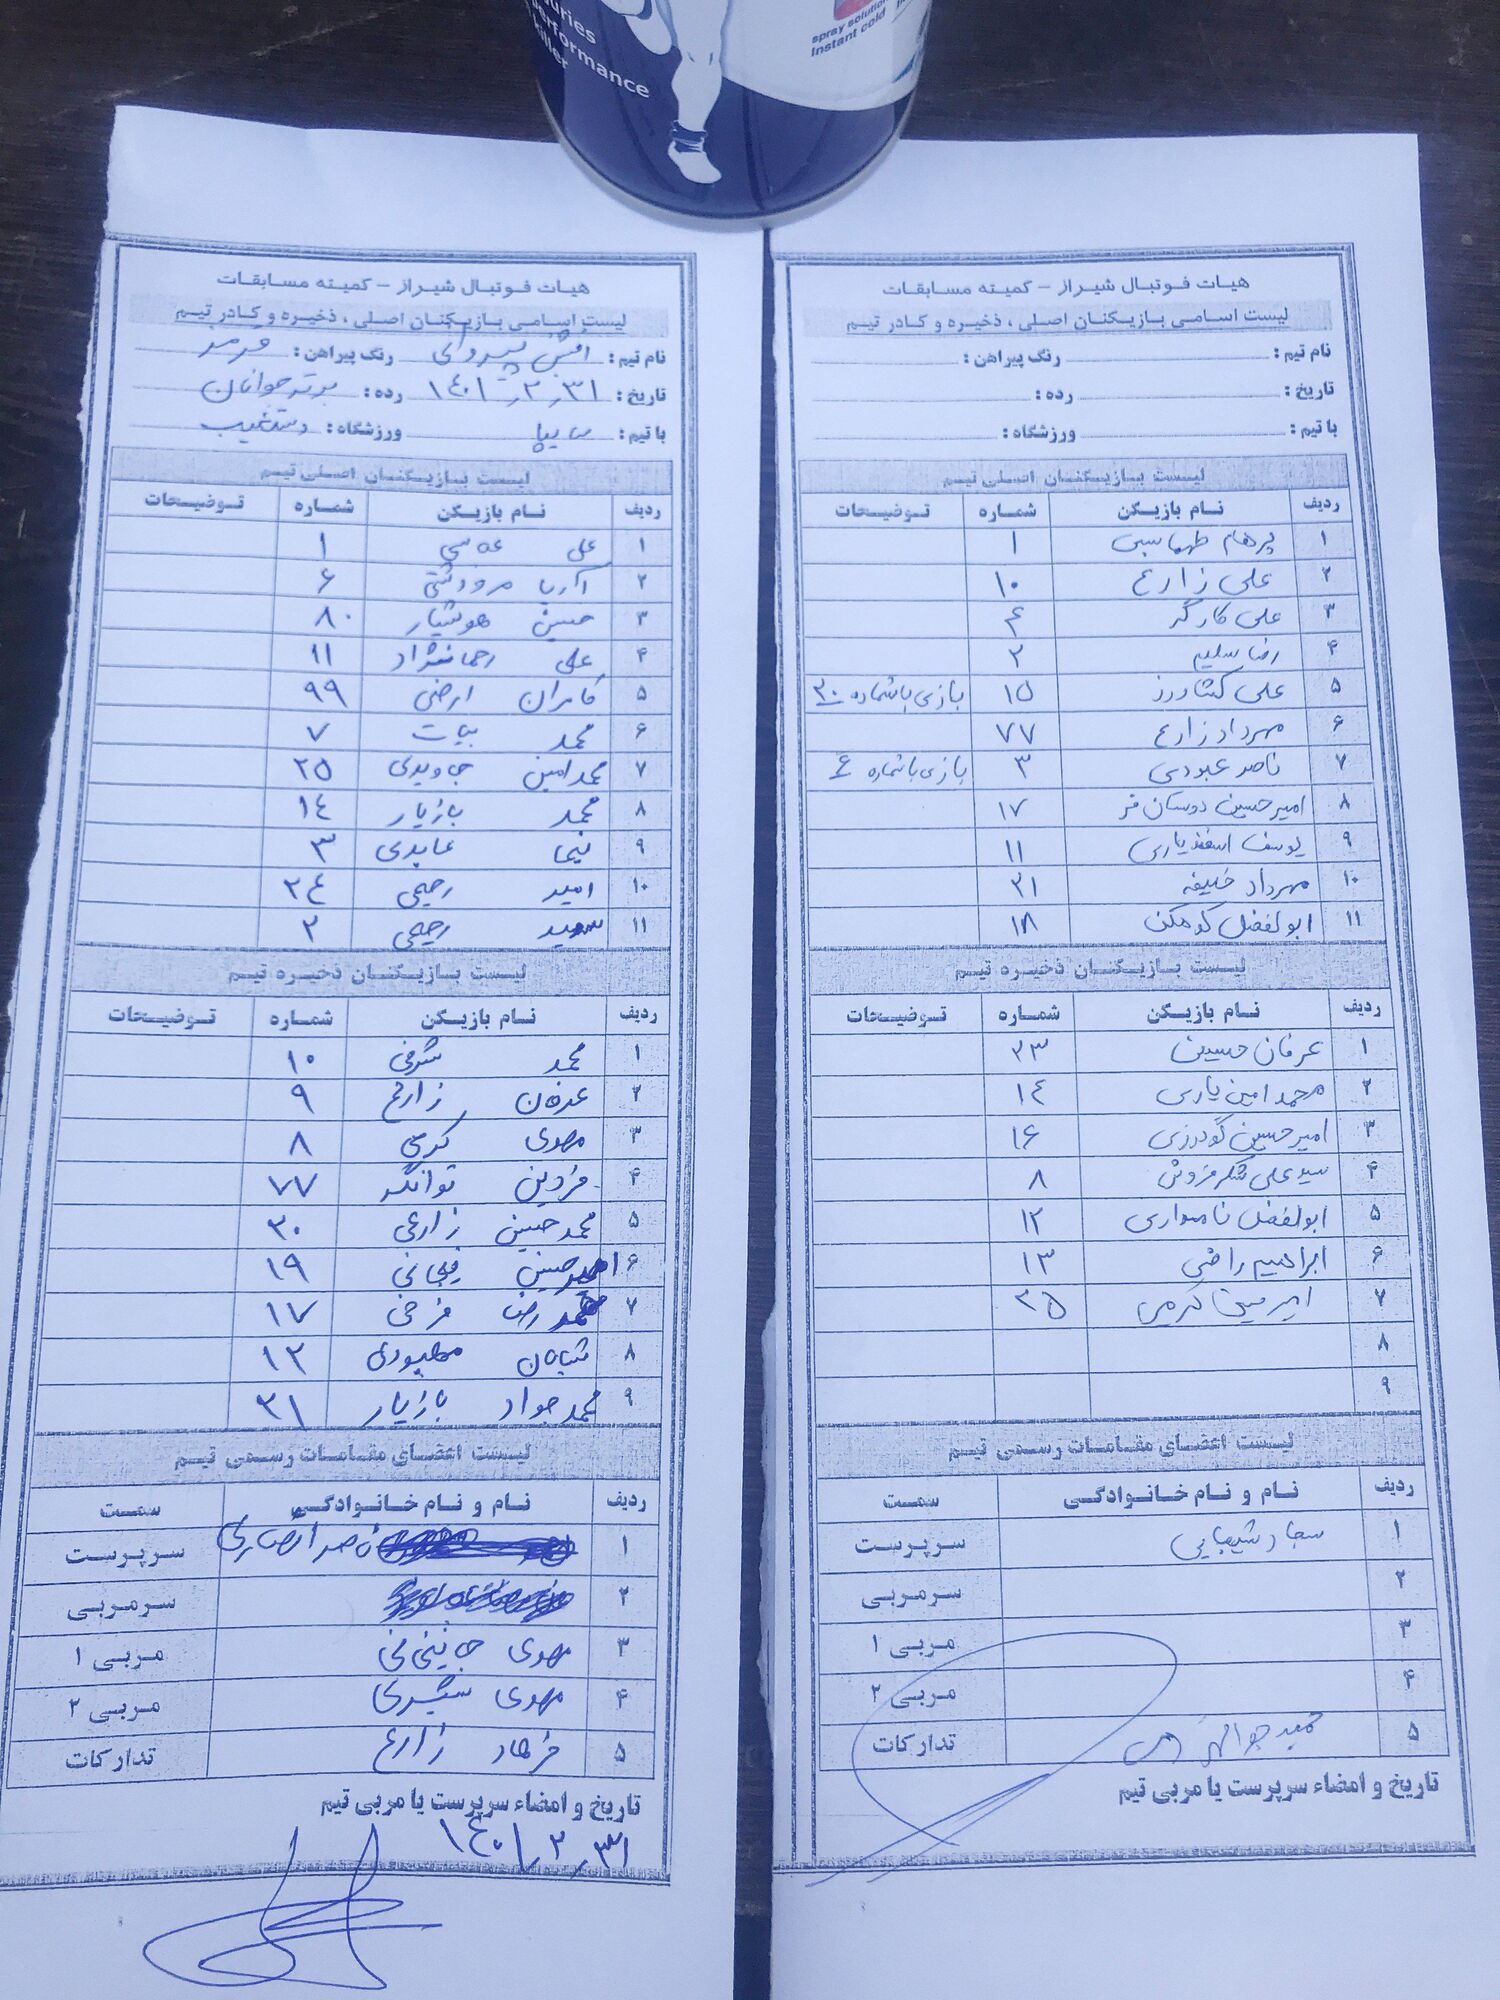 uries
performance
killer
spray solution
Instant cold
هیات فوتبال شیراز - کمیته مسابقات
لیست اسامی بازیکنان اصلی ، ذخیره و کادر تیم
نام تیم : رنگ پیراهن :
تاریخ : رده :
با تیم : ورزشگاه :
لیست بازیکنان اصلی تیم
ردیف نام بازیکن شماره توضیحات
۱ پرهام طهماسبی ۱
۲ علی زارع ۱۰
۳ علی کارگر ۴
۴ رضا سلیم ۲
۵ علی کشاورز ۱۵ بازی با شماره ۳۰
۶ مهرداد زارع ۷۷
۷ ناصر عبودی ۳ بازی با شماره ۴
۸ امیرحسین دوستان فر ۱۷
۹ یوسف اسفندیاری ۱۱
۱۰ مهرداد خلیفه ۲۱
۱۱ ابولفضل کوهکن ۱۸
لیست بازیکنان ذخیره تیم
ردیف نام بازیکن شماره توضیحات
۱ عرفان حسینی ۲۳
۲ محمد امین یاری ۱۴
۳ امیرحسین گودرزی ۱۶
۴ سید علی شکرفروش ۸
۵ ابولفضل ۱۲
۶ ابراهیم راضی ۱۳
۷ کرمی ۲۵
۸
۹
لیست اعضای مقامات رسمی تیم
ردیف نام و نام خانوادگی سمت
۱ سجاد شیبانی سرپرست
۲ سرمربی
۳ مربی ۱
۴ مربی ۲
۵ حمید تدارکات
تاریخ و امضاء سرپرست یا مربی تیم
هیات فوتبال شیراز - کمیته مسابقات
لیست اسامی بازیکنان اصلی ، ذخیره و کادر تیم
نام تیم : رنگ پیراهن : قرمز
تاریخ : ۱۴۰۱٫۲٫۳۱ رده : برتر جوانان
با تیم : سایپا ورزشگاه : دستغیب
لیست بازیکنان اصلی تیم
ردیف نام بازیکن شماره توضیحات
۱ علی ۱
۲ آریا مرودشتی ۶
۳ حسین هوشیار ۸۰
۴ علی رحماننژاد ۱۱
۵ کامران ارضی ۹۹
۶ محمد بیات ۷
۷ محمدامین جاویدی ۲۵
۸ محمد بازیار ۱۴
۹ نیما عابدی ۳
۱۰ امید رحیمی ۲۴
۱۱ سعید رحیمی ۲
لیست بازیکنان ذخیره تیم
ردیف نام بازیکن شماره توضیحات
۱ محمد شرفی ۱۰
۲ عرفان زارع ۹
۳ مهدی کرمی ۸
۴ فردین توانگر ۷۷
۵ محمدحسین زارعی ۲۰
۶ ۱۹
۷ محمدرضا فرخی ۱۷
۸ شایان ۱۲
۹ محمدجواد بازیار ۲۱
لیست اعضای مقامات رسمی تیم
ردیف نام و نام خانوادگی سمت
۱ ناصر انصاری سرپرست
۲ سرمربی
۳ مهدی مربی ۱
۴ مهدی مربی ۲
۵ فرهاد زارع تدارکات
تاریخ و امضاء سرپرست یا مربی تیم
۱۴۰۱٫۲٫۳۱